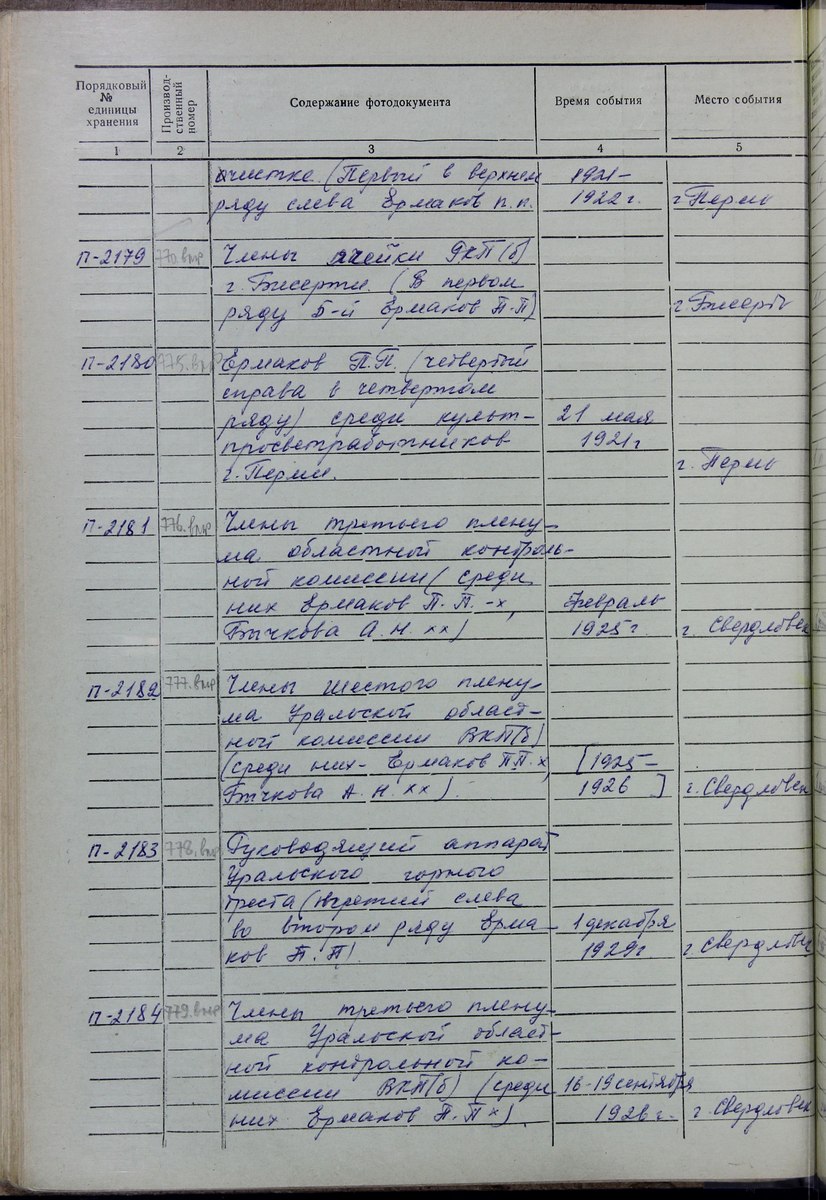 Порядковый № единицы хранения
Производственный номер
Содержание фотодокумента
Время события
Место события
1 2 3 4 5
чистке. (Первый в верхнем 1921-
ряду слева Ермаков п.п. 1922 г. г Пермь
П-2179 770.впр Члены ячейки РКП(б)
г. Бисерти. (В первом
ряду 5-й Ермаков П.П) г Бисерть
П-2180 775.впр Ермаков П.П. (четвертый
справа в четвертом
ряду) среди культ- 21 мая
просветработников 1921г
г. Перми. г. Пермь
П-2181 776.впр Члены третьего плену-
ма областной контроль-
ной комиссии (среди
них Ермаков П.П. -х, Февраль
Бычкова А.Н. хх) 1925 г. г. Свердловск
П-2182 777.впр Члены шестого плену-
ма Уральской област-
ной комиссии ВКП(б)
(среди них- Ермаков П.П. х, [1925-
Бычкова А.Н. хх). 1926 ] г. Свердловск
П-2183 778.впр Руководящий аппарат
Уральского горного
треста (третий слева
во втором ряду Ерма- 1 декабря
ков П.П). 1929г г. Свердловск
П-2184 779.впр Члены третьего плену-
ма Уральской област-
ной контрольной ко-
миссии ВКП(б) (среди 16-19 сентября
них Ермаков П.П х). 1926 г. г. Свердловск